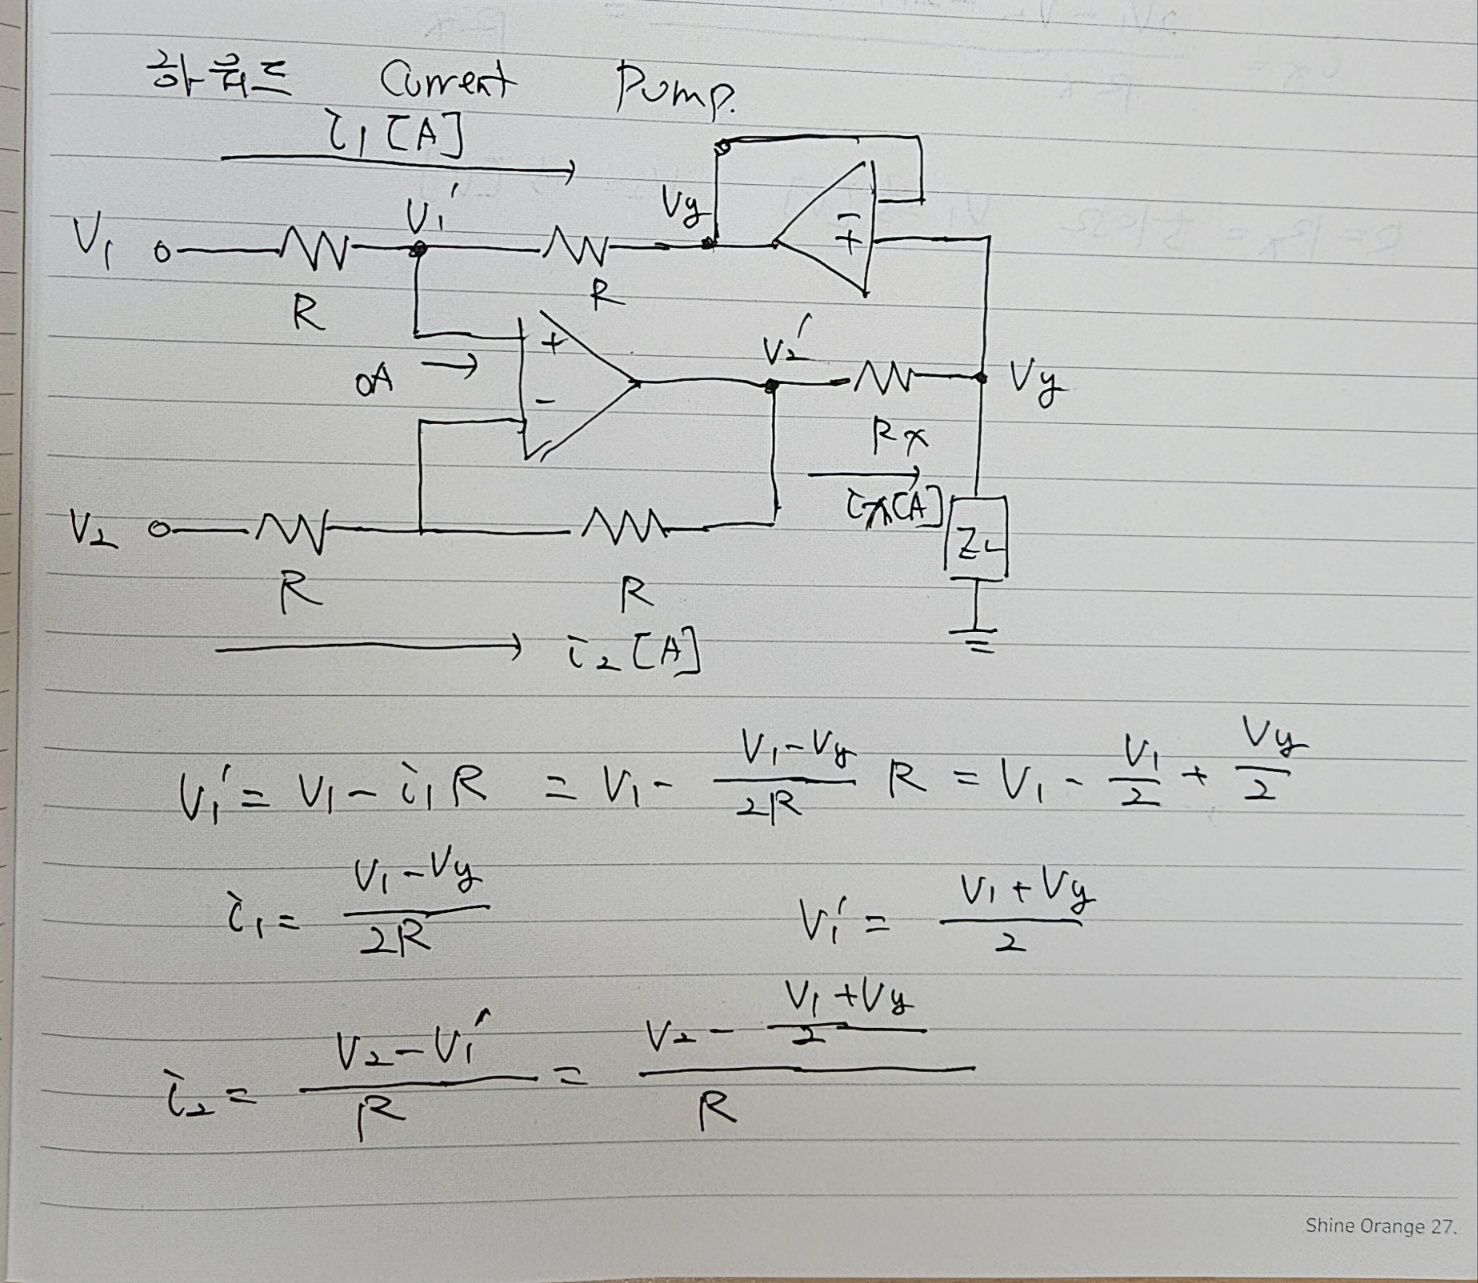 하워드 Current Pump.
i₁ [A]
V₁ V₁′ Vy
R R
- +
+
0A → V₂′ Vy
-
Rx
ix[A] ZL
V₂
R R
i₂ [A]
V₁′ = V₁ - i₁R = V₁ - (V₁-Vy)/2R R = V₁ - V₁/2 + Vy/2
i₁ = (V₁-Vy)/2R V₁′ = (V₁+Vy)/2
i₂ = (V₂-V₁′)/R = (V₂ - (V₁+Vy)/2)/R
Shine Orange 27.